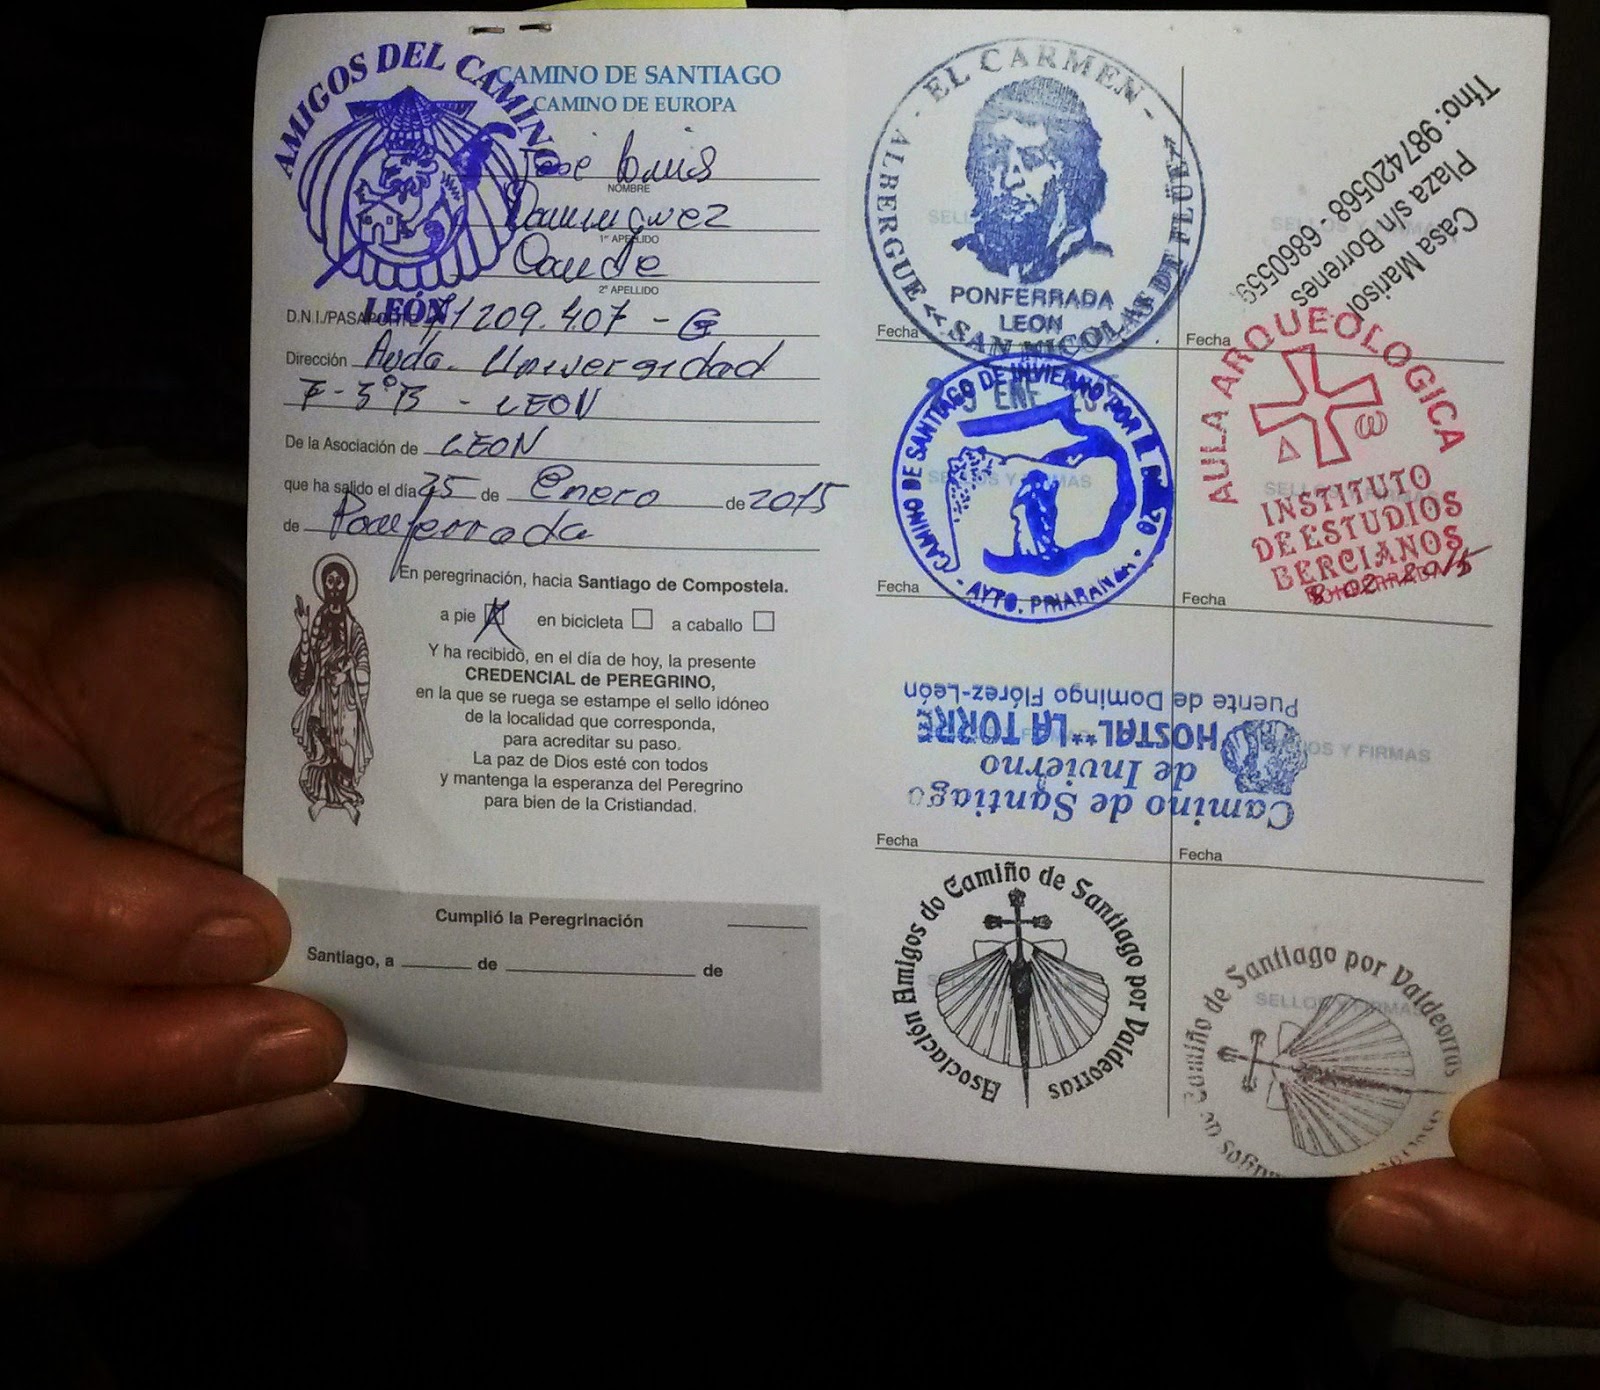 AMIGOS DEL CAMINO
LEÓN
CAMINO DE SANTIAGO
CAMINO DE EUROPA
José Luis
NOMBRE
Dominguez
1er APELLIDO
Conde
2º APELLIDO
D.N.I./PASAPORTE 71209.407-G
Dirección Avda. Universidad
7-3ºB - LEON
De la Asociación de LEON
que ha salido el día 25 de Enero de 2015
de Ponferrada
En peregrinación, hacia Santiago de Compostela.
a pie X en bicicleta a caballo
Y ha recibido, en el día de hoy, la presente
CREDENCIAL de PEREGRINO,
en la que se ruega se estampe el sello idóneo
de la localidad que corresponda,
para acreditar su paso.
La paz de Dios esté con todos
y mantenga la esperanza del Peregrino
para bien de la Cristiandad.
Cumplió la Peregrinación
Santiago, a de de
- EL CARMEN -
ALBERGUE << SAN NICOLAS DE FLÜE >>
PONFERRADA
LEON
Fecha
Casa Marisol
Plaza s/n Borrenes
Tfno: 987420568 - 6860559
SELLOS Y FIRMAS
Fecha
ENE
CAMINO DE SANTIAGO DE INVIERNO POR
- AYTO. PRIARANZA -
SELLOS Y FIRMAS
Fecha
AULA ARQUEOLOGICA
INSTITUTO
DE ESTUDIOS
BERCIANOS
PONFERRADA
8-02-2015
SELLOS Y FIRMAS
Fecha
Camino de Santiago
de Invierno
HOSTAL**LA TORRE
Puente de Domingo Flórez-León
SELLOS Y FIRMAS
Fecha
Fecha
Asociación Amigos do Camiño de Santiago por Valdeorras
Camiño de Santiago por Valdeorras
SELLOS Y FIRMAS